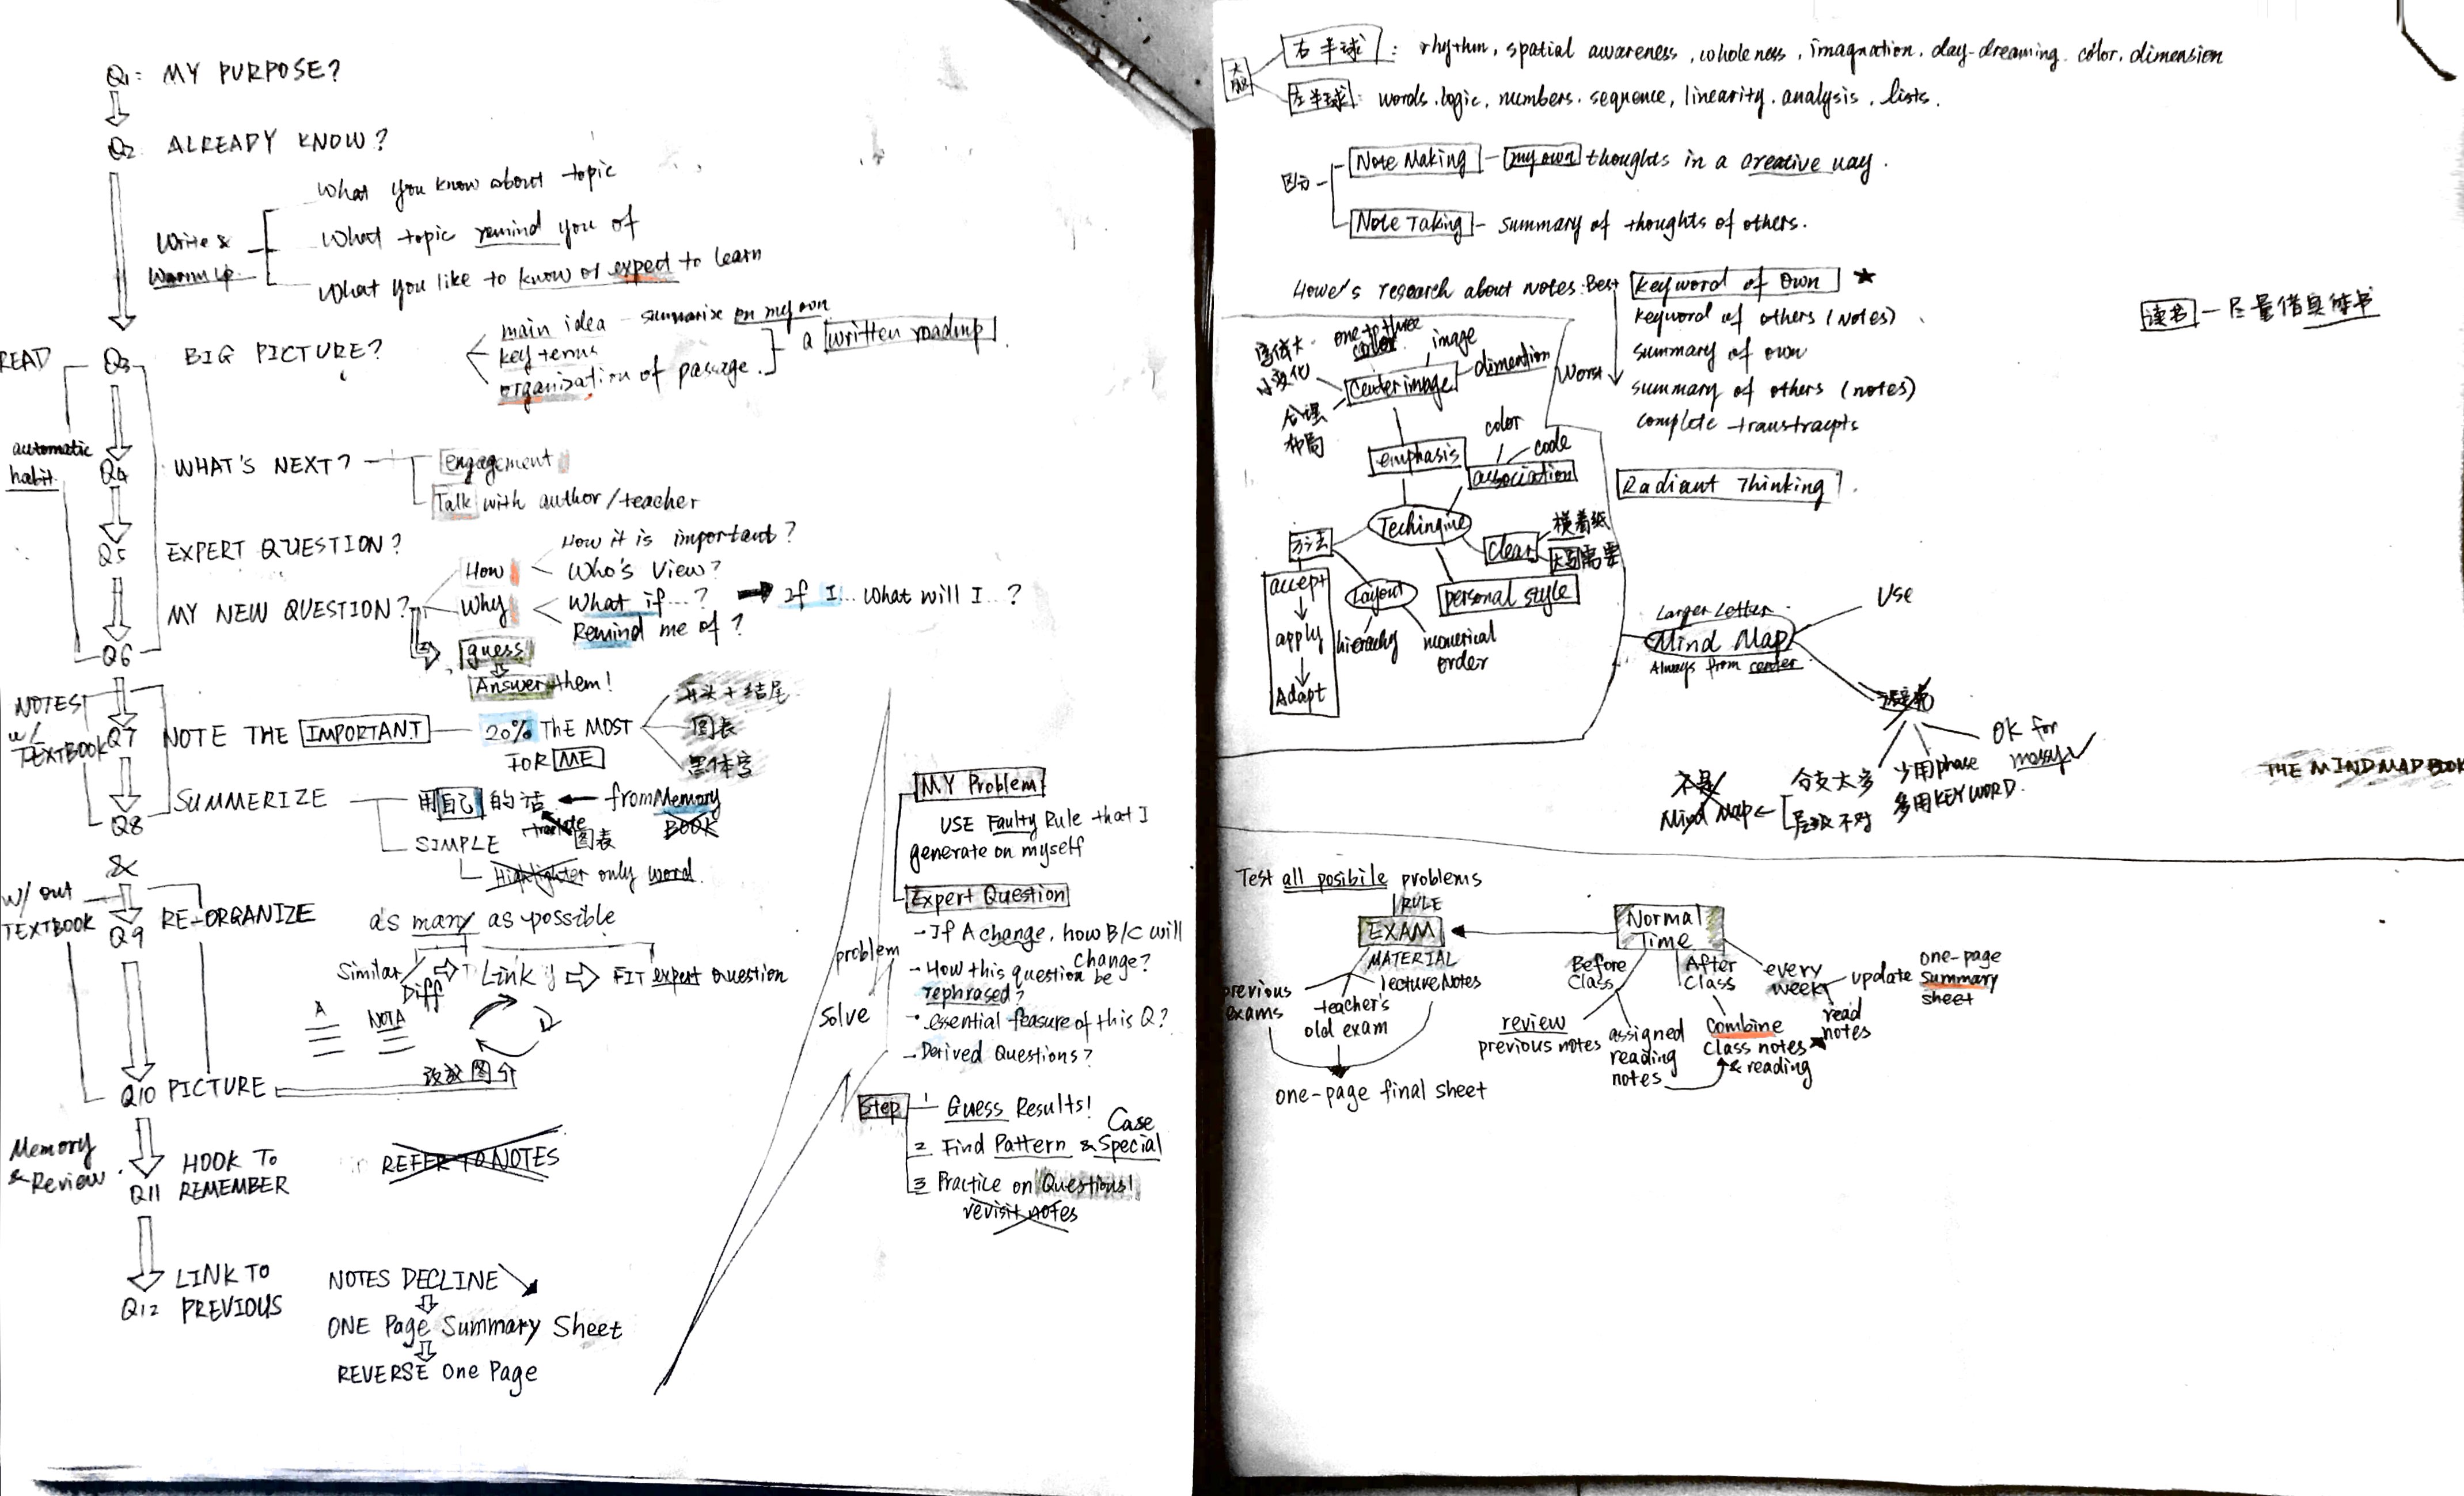 Q1: MY PURPOSE?
Q2 ALREADY KNOW?
Write &
Warm up
What you know about topic
What topic remind you of
What you like to know or expect to learn
READ
Q3 BIG PICTURE?
main idea - summarize on my own
key terms
organization of passage.
a written roadup
automatic
habit
Q4 WHAT'S NEXT?
engagement
Talk with author/teacher
Q5 EXPERT QUESTION?
MY NEW QUESTION?
How
How it is important?
Who's View?
Why
What if...?
Remind me of?
If I... what will I...?
guess
Answer them!
Q6
NOTES
w/
TEXTBOOK
Q7 NOTE THE IMPORTANT
20% THE MOST
FOR ME
开头+结尾
图表
黑体字
Q8 SUMMERIZE
用自己的话 ← from Memory
BOOK
图表
SIMPLE
Highlighter only word.
&
w/ out
TEXTBOOK
Q9 RE-ORGANIZE
as many as possible
Similar/
Diff
Link
FIT expert question
A
NOT A
Q10 PICTURE
Memory
& Review
Q11 HOOK TO
REMEMBER
REFER TO NOTES
Q12 LINK TO
PREVIOUS
NOTES DECLINE
ONE Page Summary Sheet
REVERSE One Page
problem
solve
MY Problem
USE Faulty Rule that I
generate on myself
Expert Question
- If A change, how B/C will
change?
- How this question be
rephrased?
· essential feasure of this Q?
- Derived Questions?
Step
1 Guess Results!
2 Find Pattern & Special
Case
3 Practice on Questions!
revisit notes
大脑
右半球: rhythm, spatial awareness, wholeness, imagnation, day-dreaming, color, dimension
左半球: words, logic, numbers, sequence, linearity, analysis, lists.
区分
Note Making - my own thoughts in a creative way.
Note Taking - summary of thoughts of others.
Howe's research about notes: Best
keyword of own ★
keyword of others (notes)
summary of own
summary of others (notes)
complete
Worst
读书 - 尽量借
字体大
小变化
合理
布局
one to three
color
image
dimention
Center image
emphasis
color
code
association
Radiant Thinking!
Techinque
方法
accept
apply
Adapt
Layout
hierachy
numerical
order
clear
横着纸
personal style
Larger Letter
Mind Map
Always from center
Use
避免
OK for
messy
少用phase
多用KEYWORD.
分支太多
层级不对
不是
Mind Map
THE MIND MAP BOOK
Test all posibile problems
RULE
EXAM
MATERIAL
previous
exams
teacher's
old exam
lecture Notes
one-page final sheet
Normal
Time
Before
Class
review
previous notes
assigned
reading
notes
After
Class
Combine
class notes
& reading
every
week
update
one-page
summary
sheet
read
notes